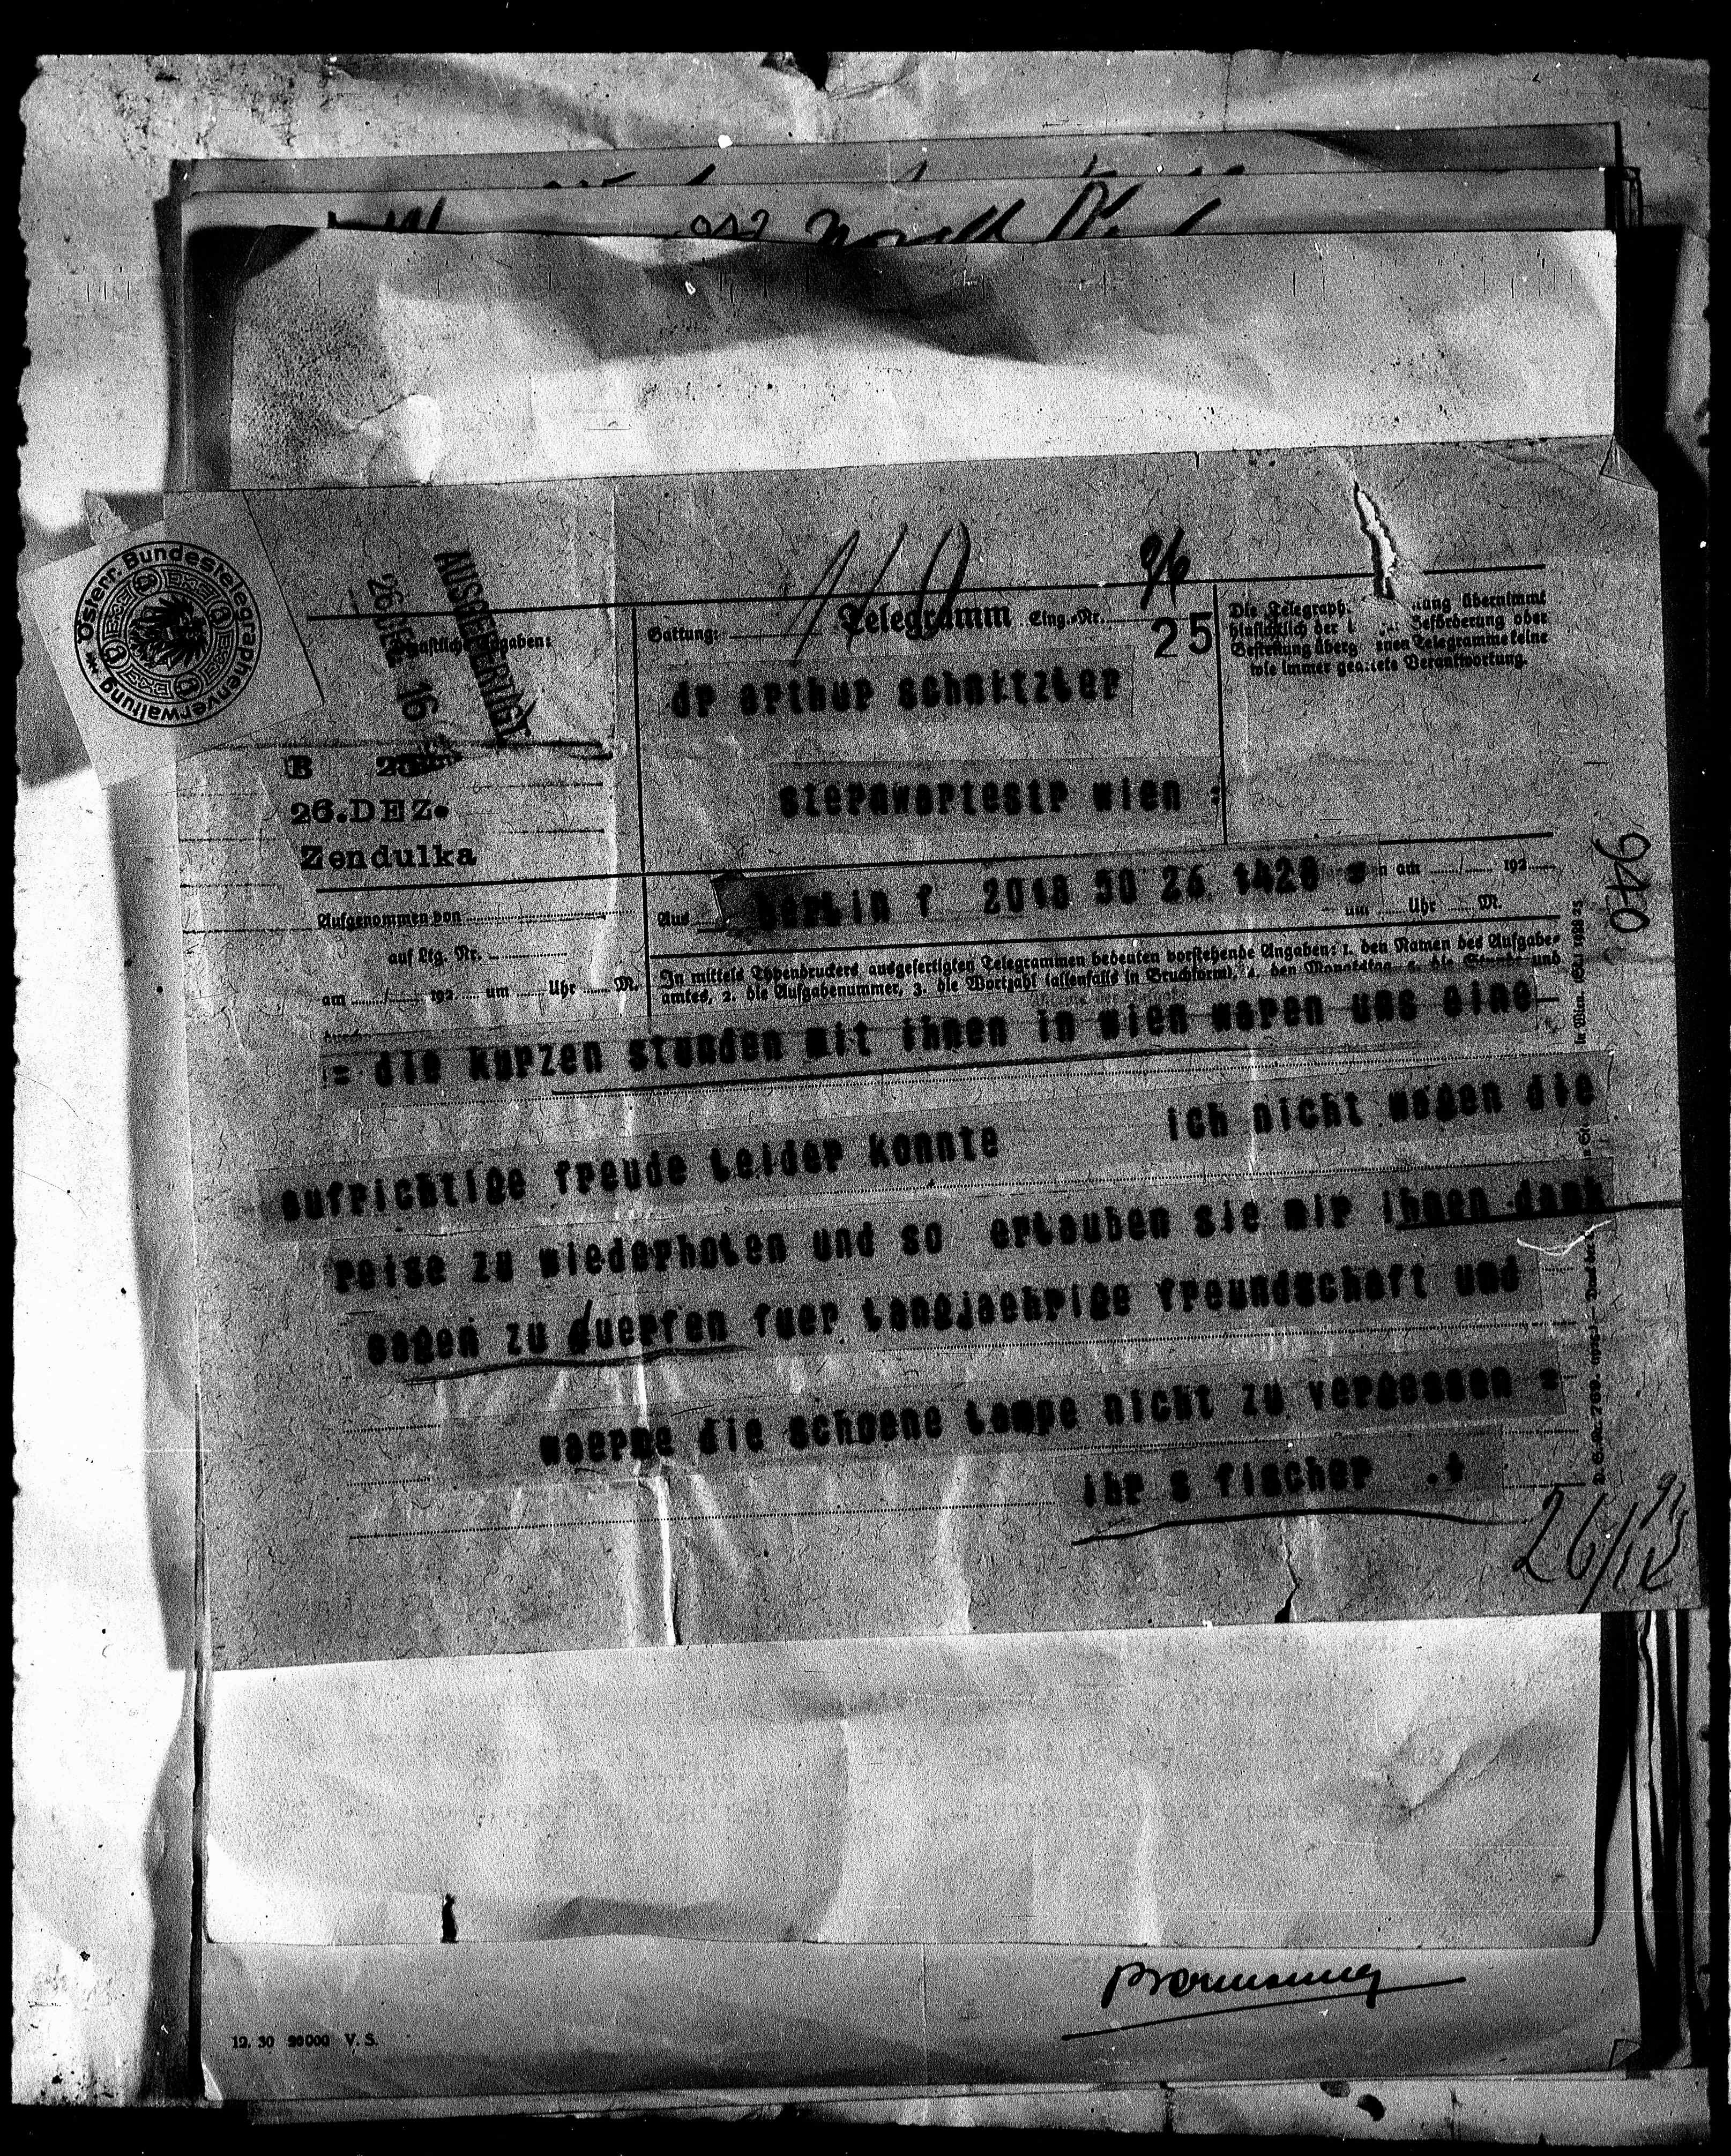 Österr. Bundestelegraphenverwaltung
AUSGEFERTIGT
26 DEZ. 16
Telegramm Eing.-Nr.
Gattung:
9/6
25
Die Telegraph. tung übernimmt
hinsichtlich der Beförderung oder
Bestellung überg enen Telegramme keine
wie immer geartete Verantwortung.
dr arthur schnitzler
sternwartestr wien =
B
26.DEZ.
Zendulka
Aus berlin f 2018 50 26 1428 =
am 192
um Uhr M.
Aufgenommen von
auf Ltg. Nr.
am 192 um Uhr M.
In mittels Typendruckers ausgefertigten Telegrammen bedeuten vorstehende Angaben: 1. den Namen des Aufgabe-
amtes, 2. die Aufgabenummer, 3. die Wortzahl (allenfalls in Bruchform), 4. den Monatstag, 5. die Stunde und
= die kurzen stunden mit ihnen in wien waren uns eine
aufrichtige freude leider konnte ich nicht wagen die
reise zu wiederholen und so erlauben sie mir ihnen dank
sagen zu duerfen fuer langjaehrige freundschaft und
waerme die schoene lampe nicht zu vergessen =
ihr s fischer .+
940
26/12
12. 30 20000 V. S.